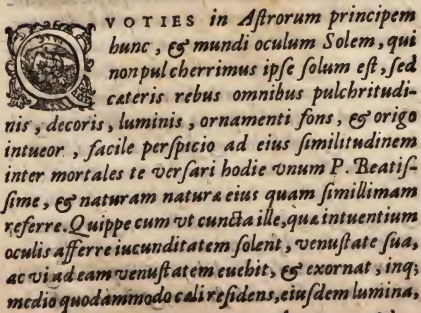 QVOTIES in Aſtrorum principem
hunc, & mundi oculum Solem, qui
non pulcherrimus ipſe ſolum eſt, ſed
cæteris rebus omnibus pulchritudi-
nis, decoris, luminis, ornamenti fons, & origo
intueor, facile perſpicio ad eius ſimilitudinem
inter mortales te verſari hodie vnum P. Beatiſ-
ſime, & naturam naturæ eius quam ſimillimam
referre. Quippe cum vt cuncta ille, quæ intuentium
oculis afferre iucunditatem ſolent, venuſtate ſua,
ac vi ad eam venuſtatem euehit, & exornat, inq;
medio quodammodo cæli reſidens, eiuſdem lumina,